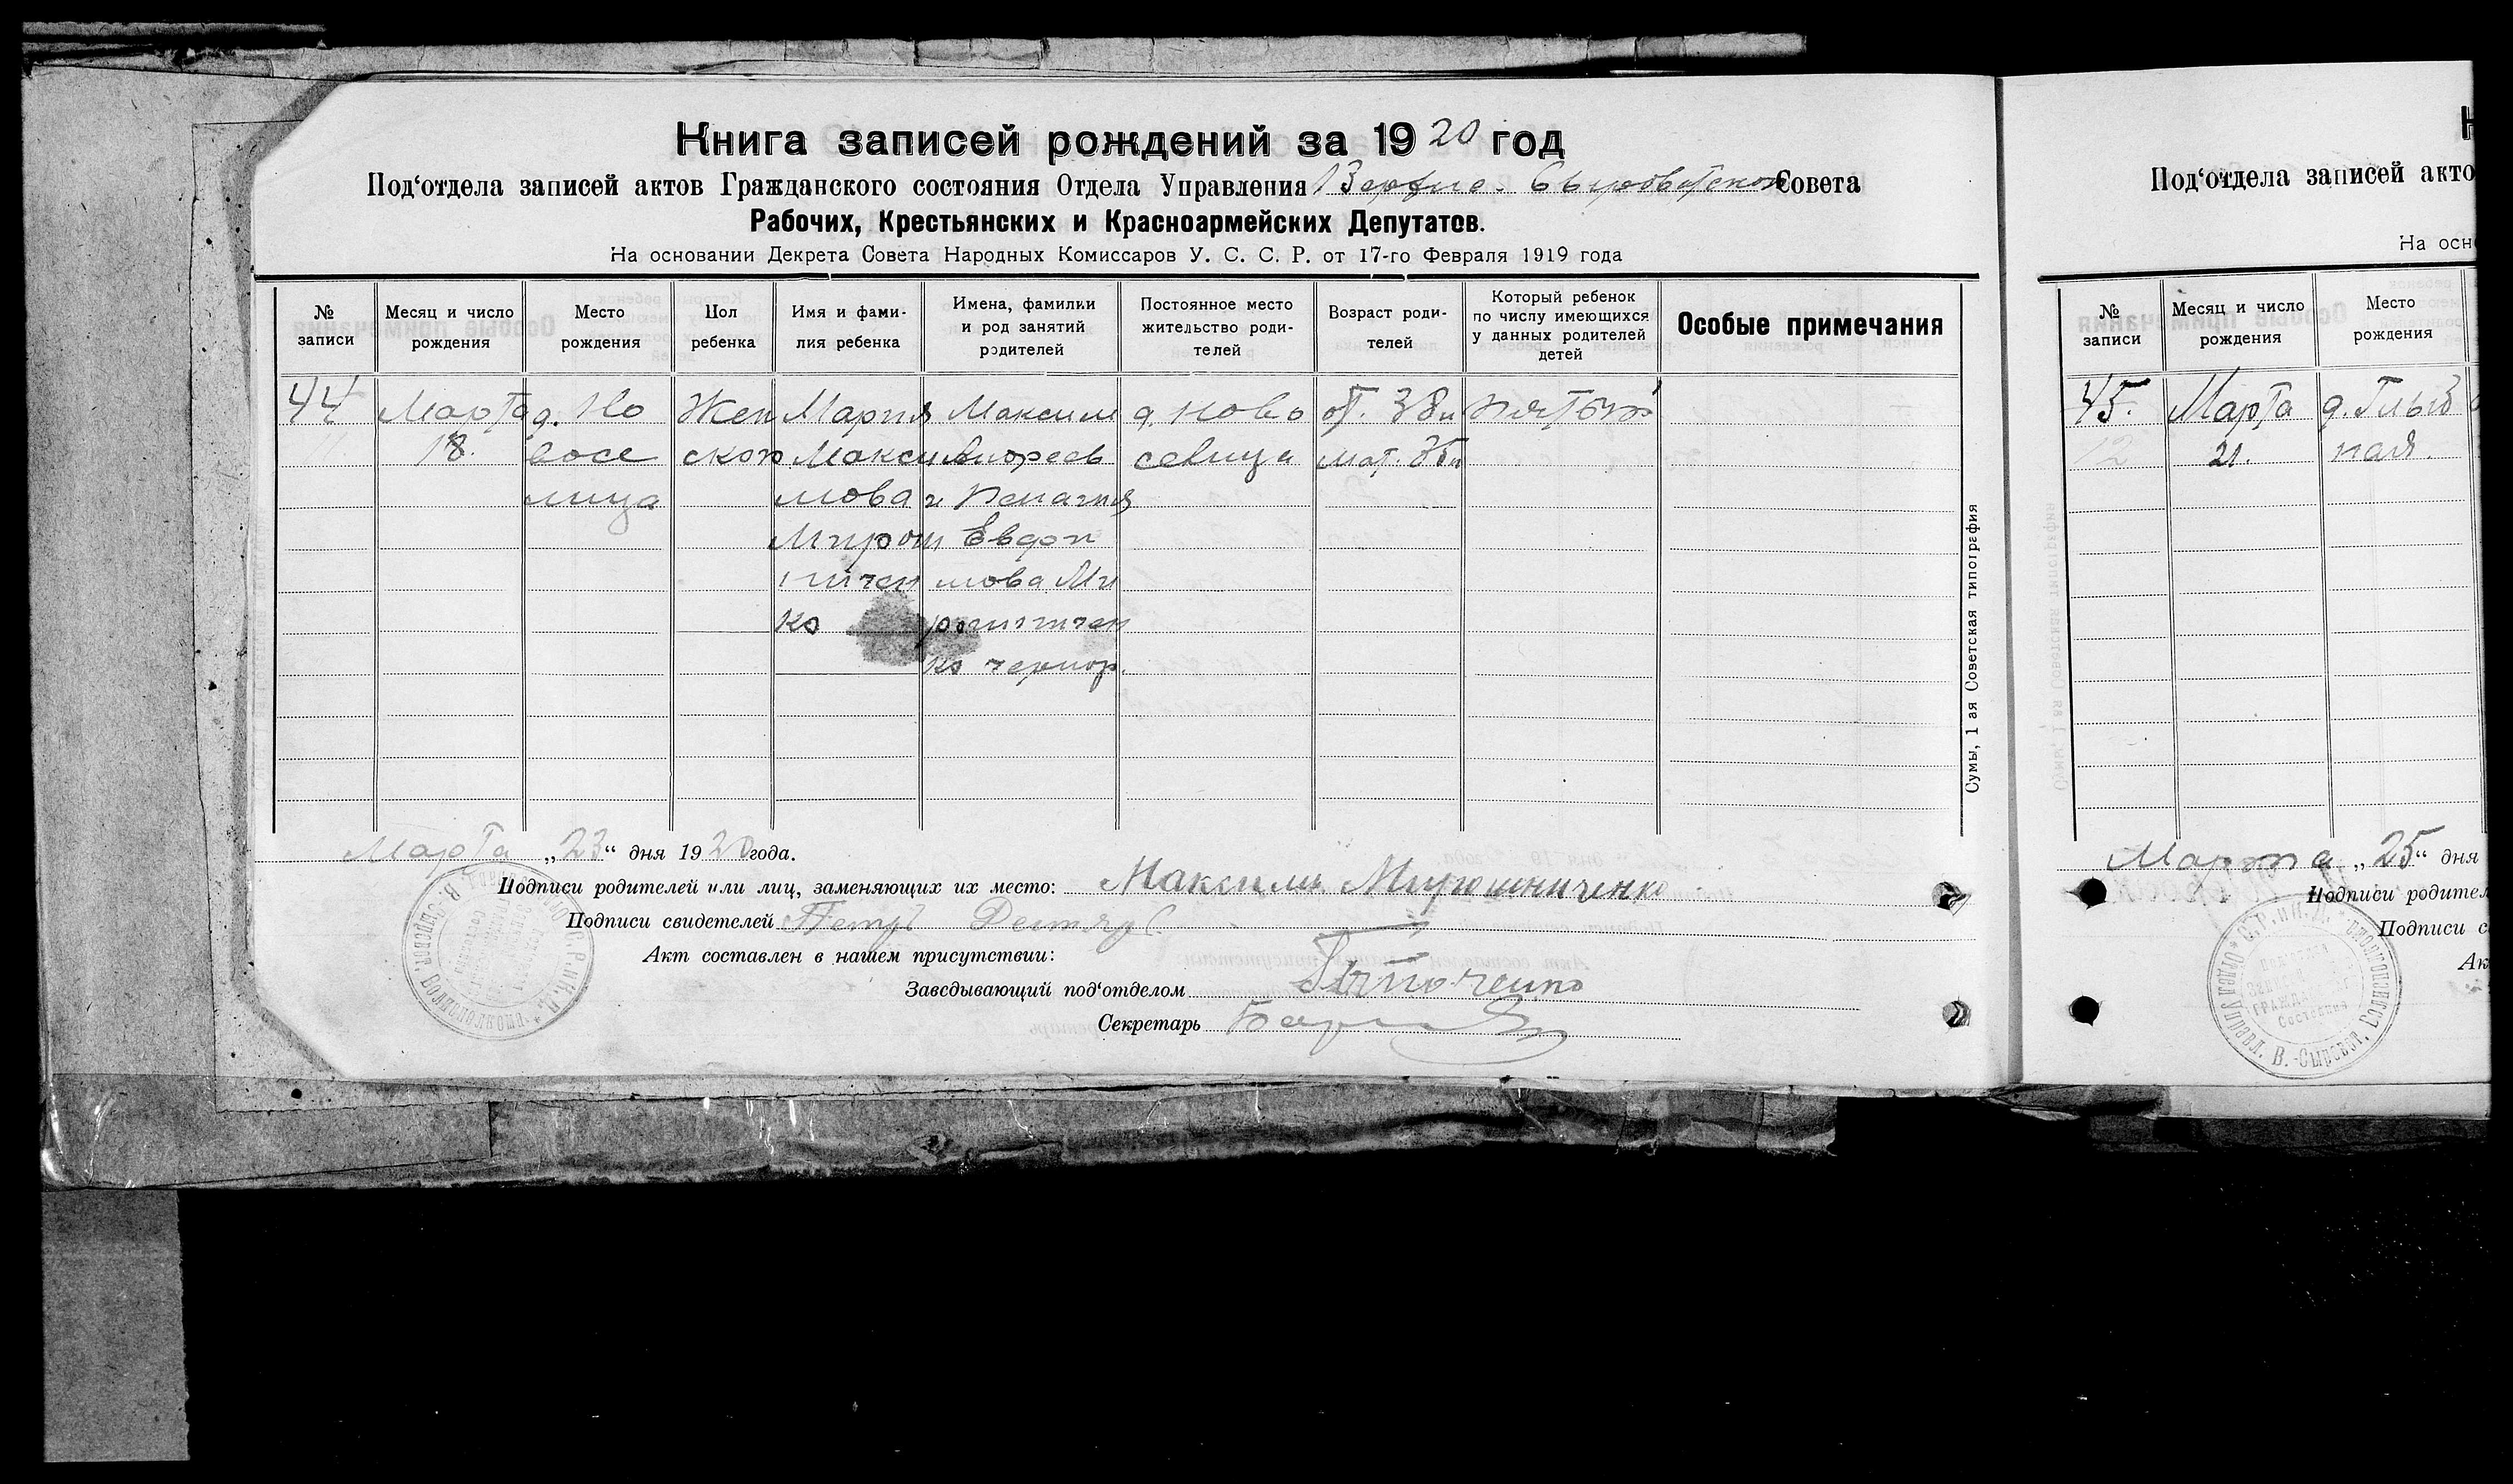 Книга записей рождений за 1920 год
Под‘отдела записей актов Гражданского состояния Отдела Управления Совета
Рабочих, Крестьянских и Красноармейских Депутатов.
На основании Декрета Совета Народных Комиссаров У. С. С. Р. от 17-го Февраля 1919 года
№ записи
Месяц и число рождения
Место рождения
Пол ребенка
Имя и фами-
лия ребенка
Имена, фамилии
и род занятий
родителей
Постоянное место
жительство роди-
телей
Возраст роди-
телей
Который ребенок
по числу имеющихся
у данных родителей
детей
Особые примечания
44
Марта
18.
д. Но
восе
лица
Жен
ской
Мария
Макси
мова
Мирош
ничен
ко
Максим
Андреев
и Пелагия
Евдоки
мова Ми
рошничен
ко чернор.
д. Ново
селица
от. 38л
мат. 35л
Пятый
Сумы, 1 ая Советская типография
Марта „23“ дня 1920 года.
Подписи родителей или лиц, заменяющих их место: Максим Мирошниченко
Подписи свидетелей Петр
Акт составлен в нашем присутствии:
Заведывающий под‘отделом
Секретарь
Под‘отдела записей акто
На осн
№ записи
Месяц и число рождения
Место рождения
45.
Марта
21.
д. Глыб
ная.
Марта „25“ дня
Подписи родител
Подписи с
Ак